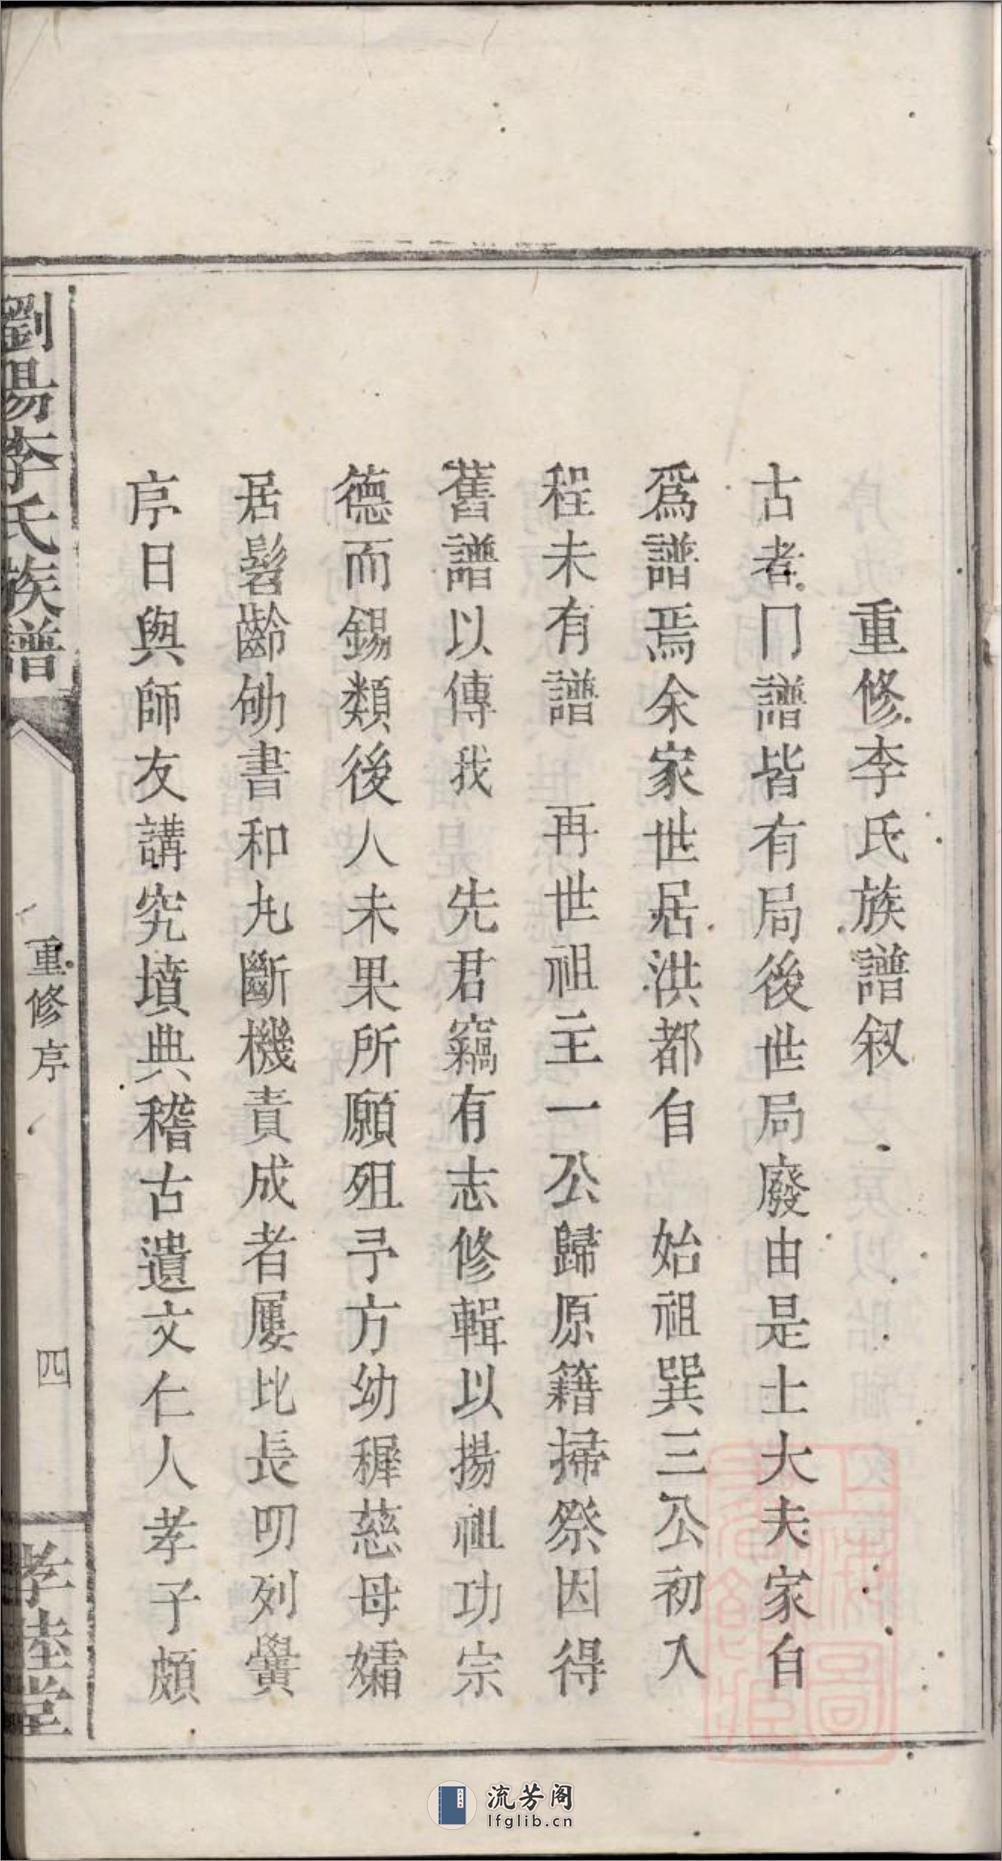 重修李氏族譜叙
古者門譜皆有局後世局廢由是士大夫家自
爲譜焉余家世居洪都自　始祖巽三公初入
程未有譜　再世祖主一公歸原籍掃祭因得
舊譜以傳我　先君竊有志修輯以揚祖功宗
德而錫類後人未果所願殂予方幼穉慈母孀
居髫齡劬書和丸斷機責成者屢比長叨列黌
序日與師友講究墳典稽古遺文仁人孝子頗
劉陽李氏族譜
重修序
四
孝睦堂
上海圖
書館藏
流芳阁
lfglib.cn